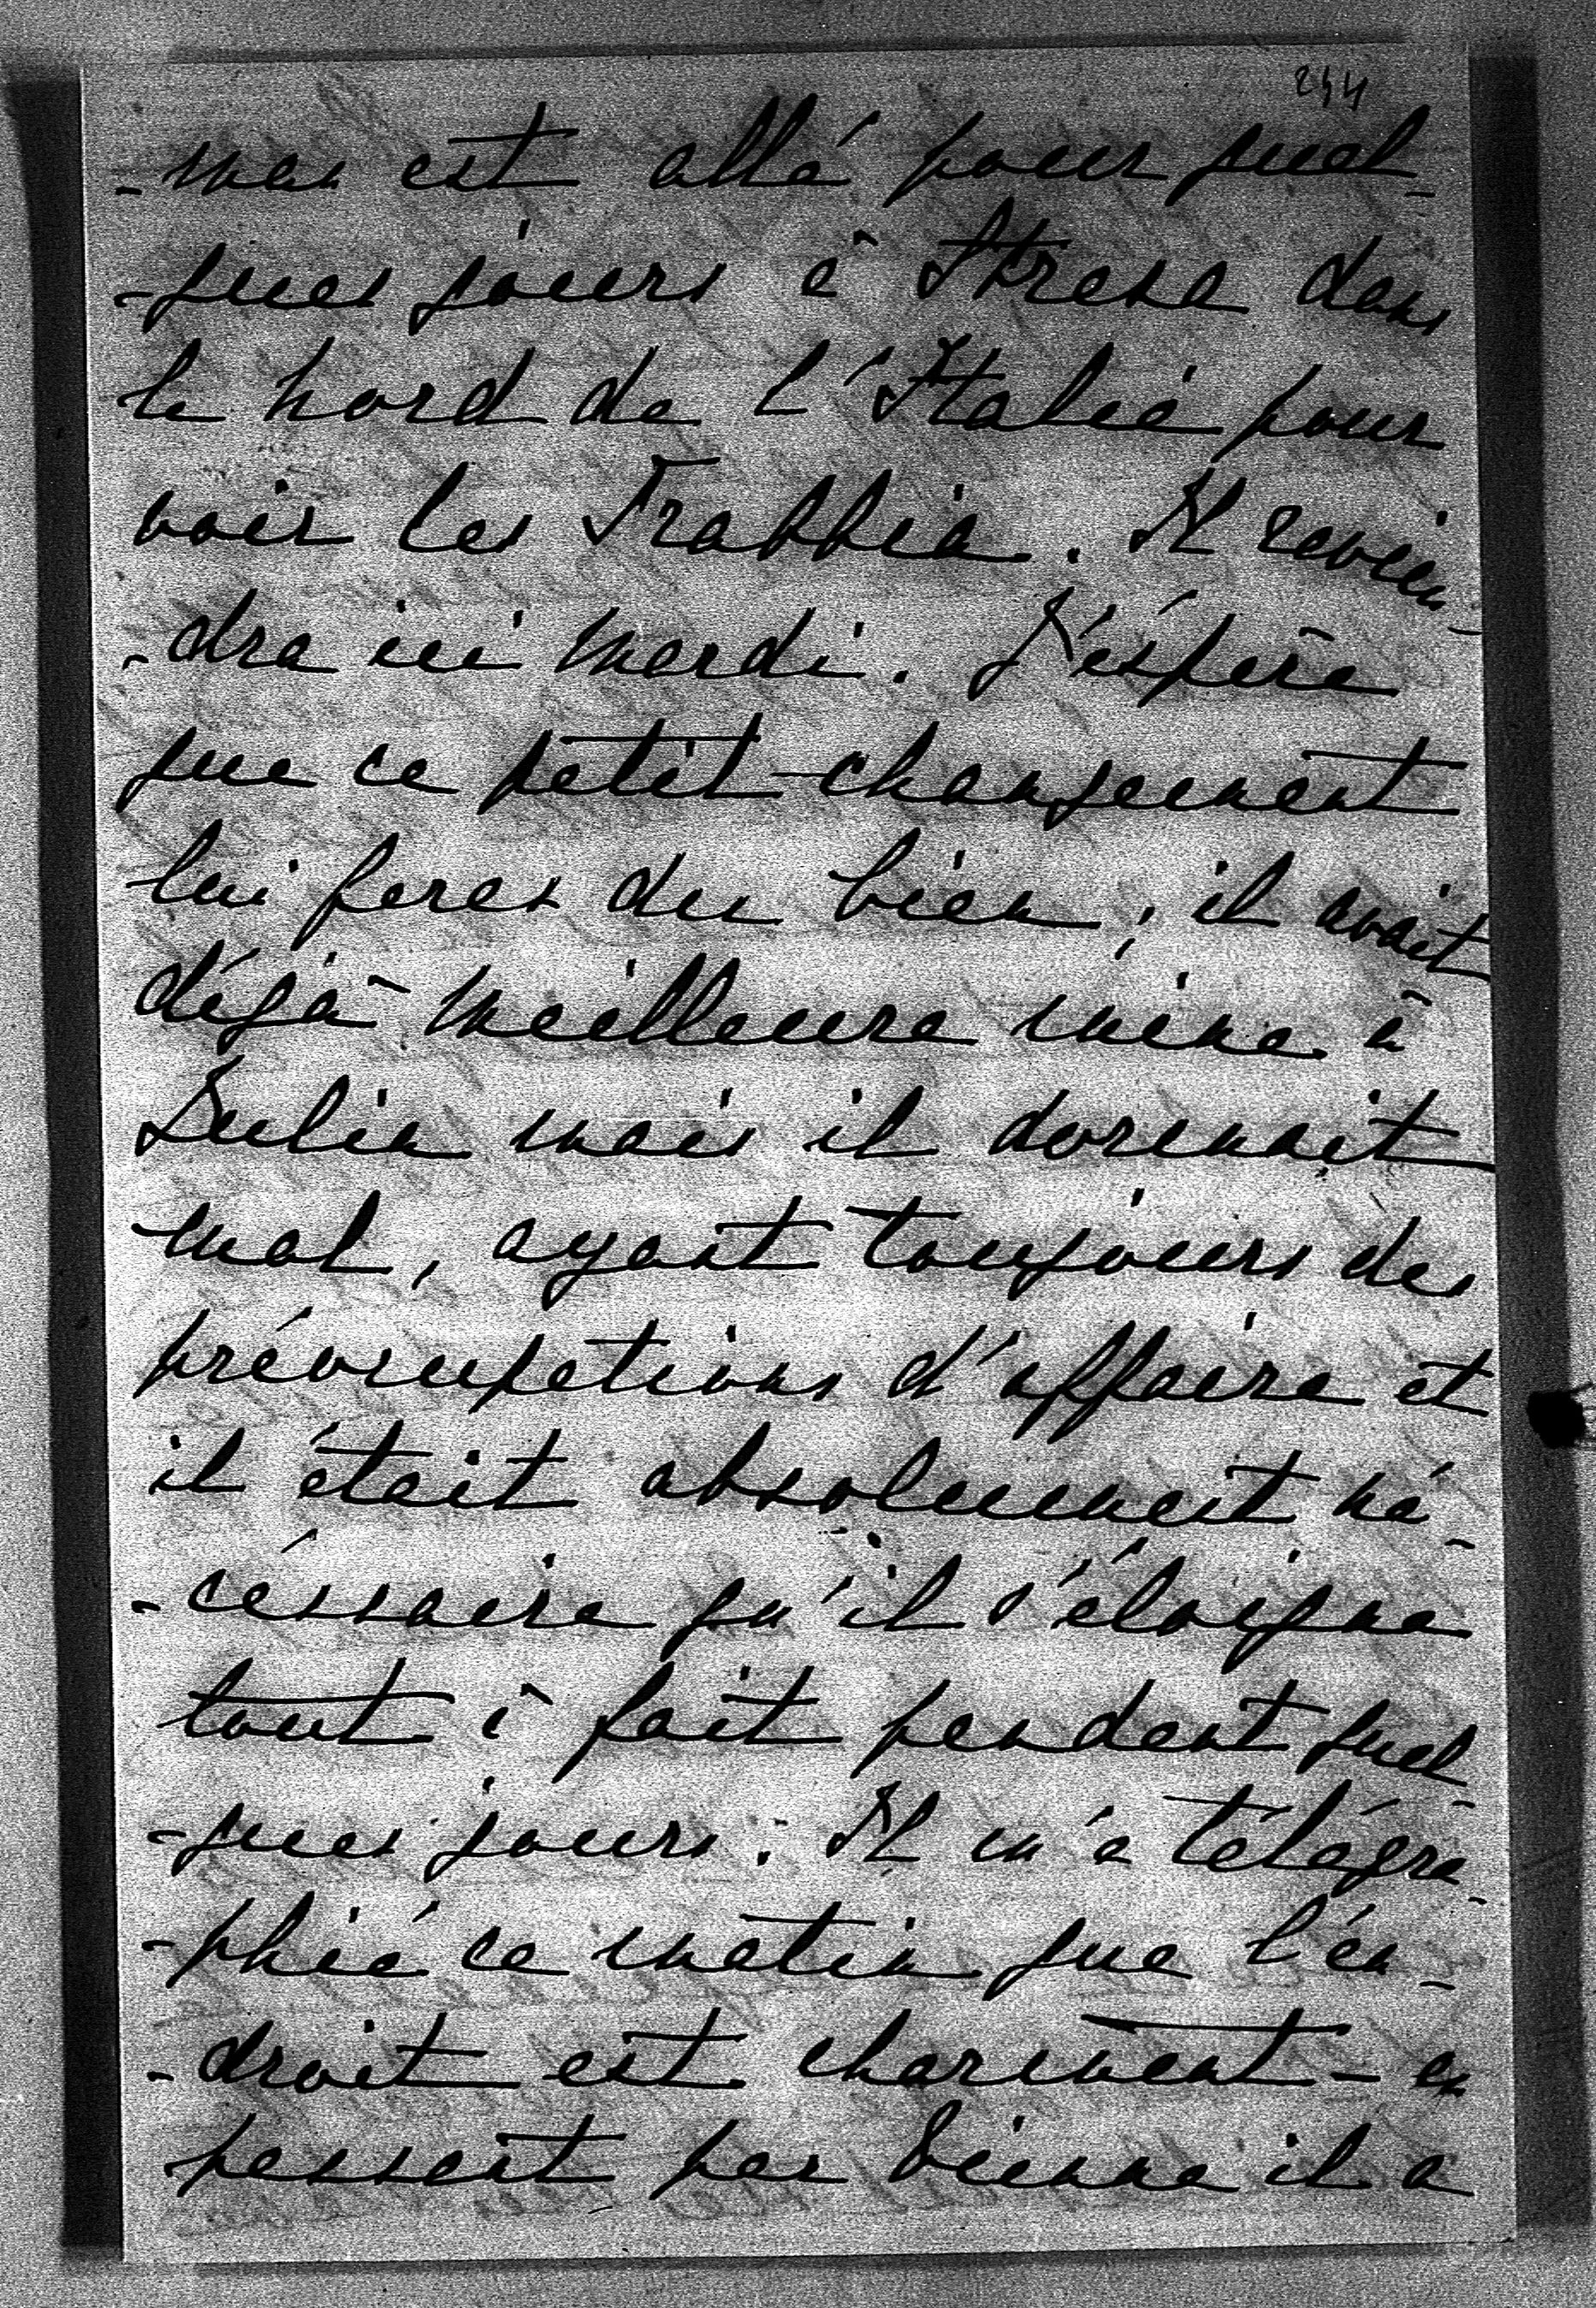 244
-man est allé pour quel-
-ques jours à Stresa dans
le nord de l'Italie pour
voir les Trabbia. Il revien-
-dra ici mardi. J'éspère
que ce petit changement
lui feras du bien; il avait
déjà meilleure mine à
mais il dormait
mal, ayant toujours des
préoccupations d'affaire et
il était absolument né-
-céssaire qu'il s'éloigne
tout à fait pendant quel-
-ques jours. Il m'a télégra-
-phié ce matin que l'en-
-droit est charmant - en
passant par Vienne il a